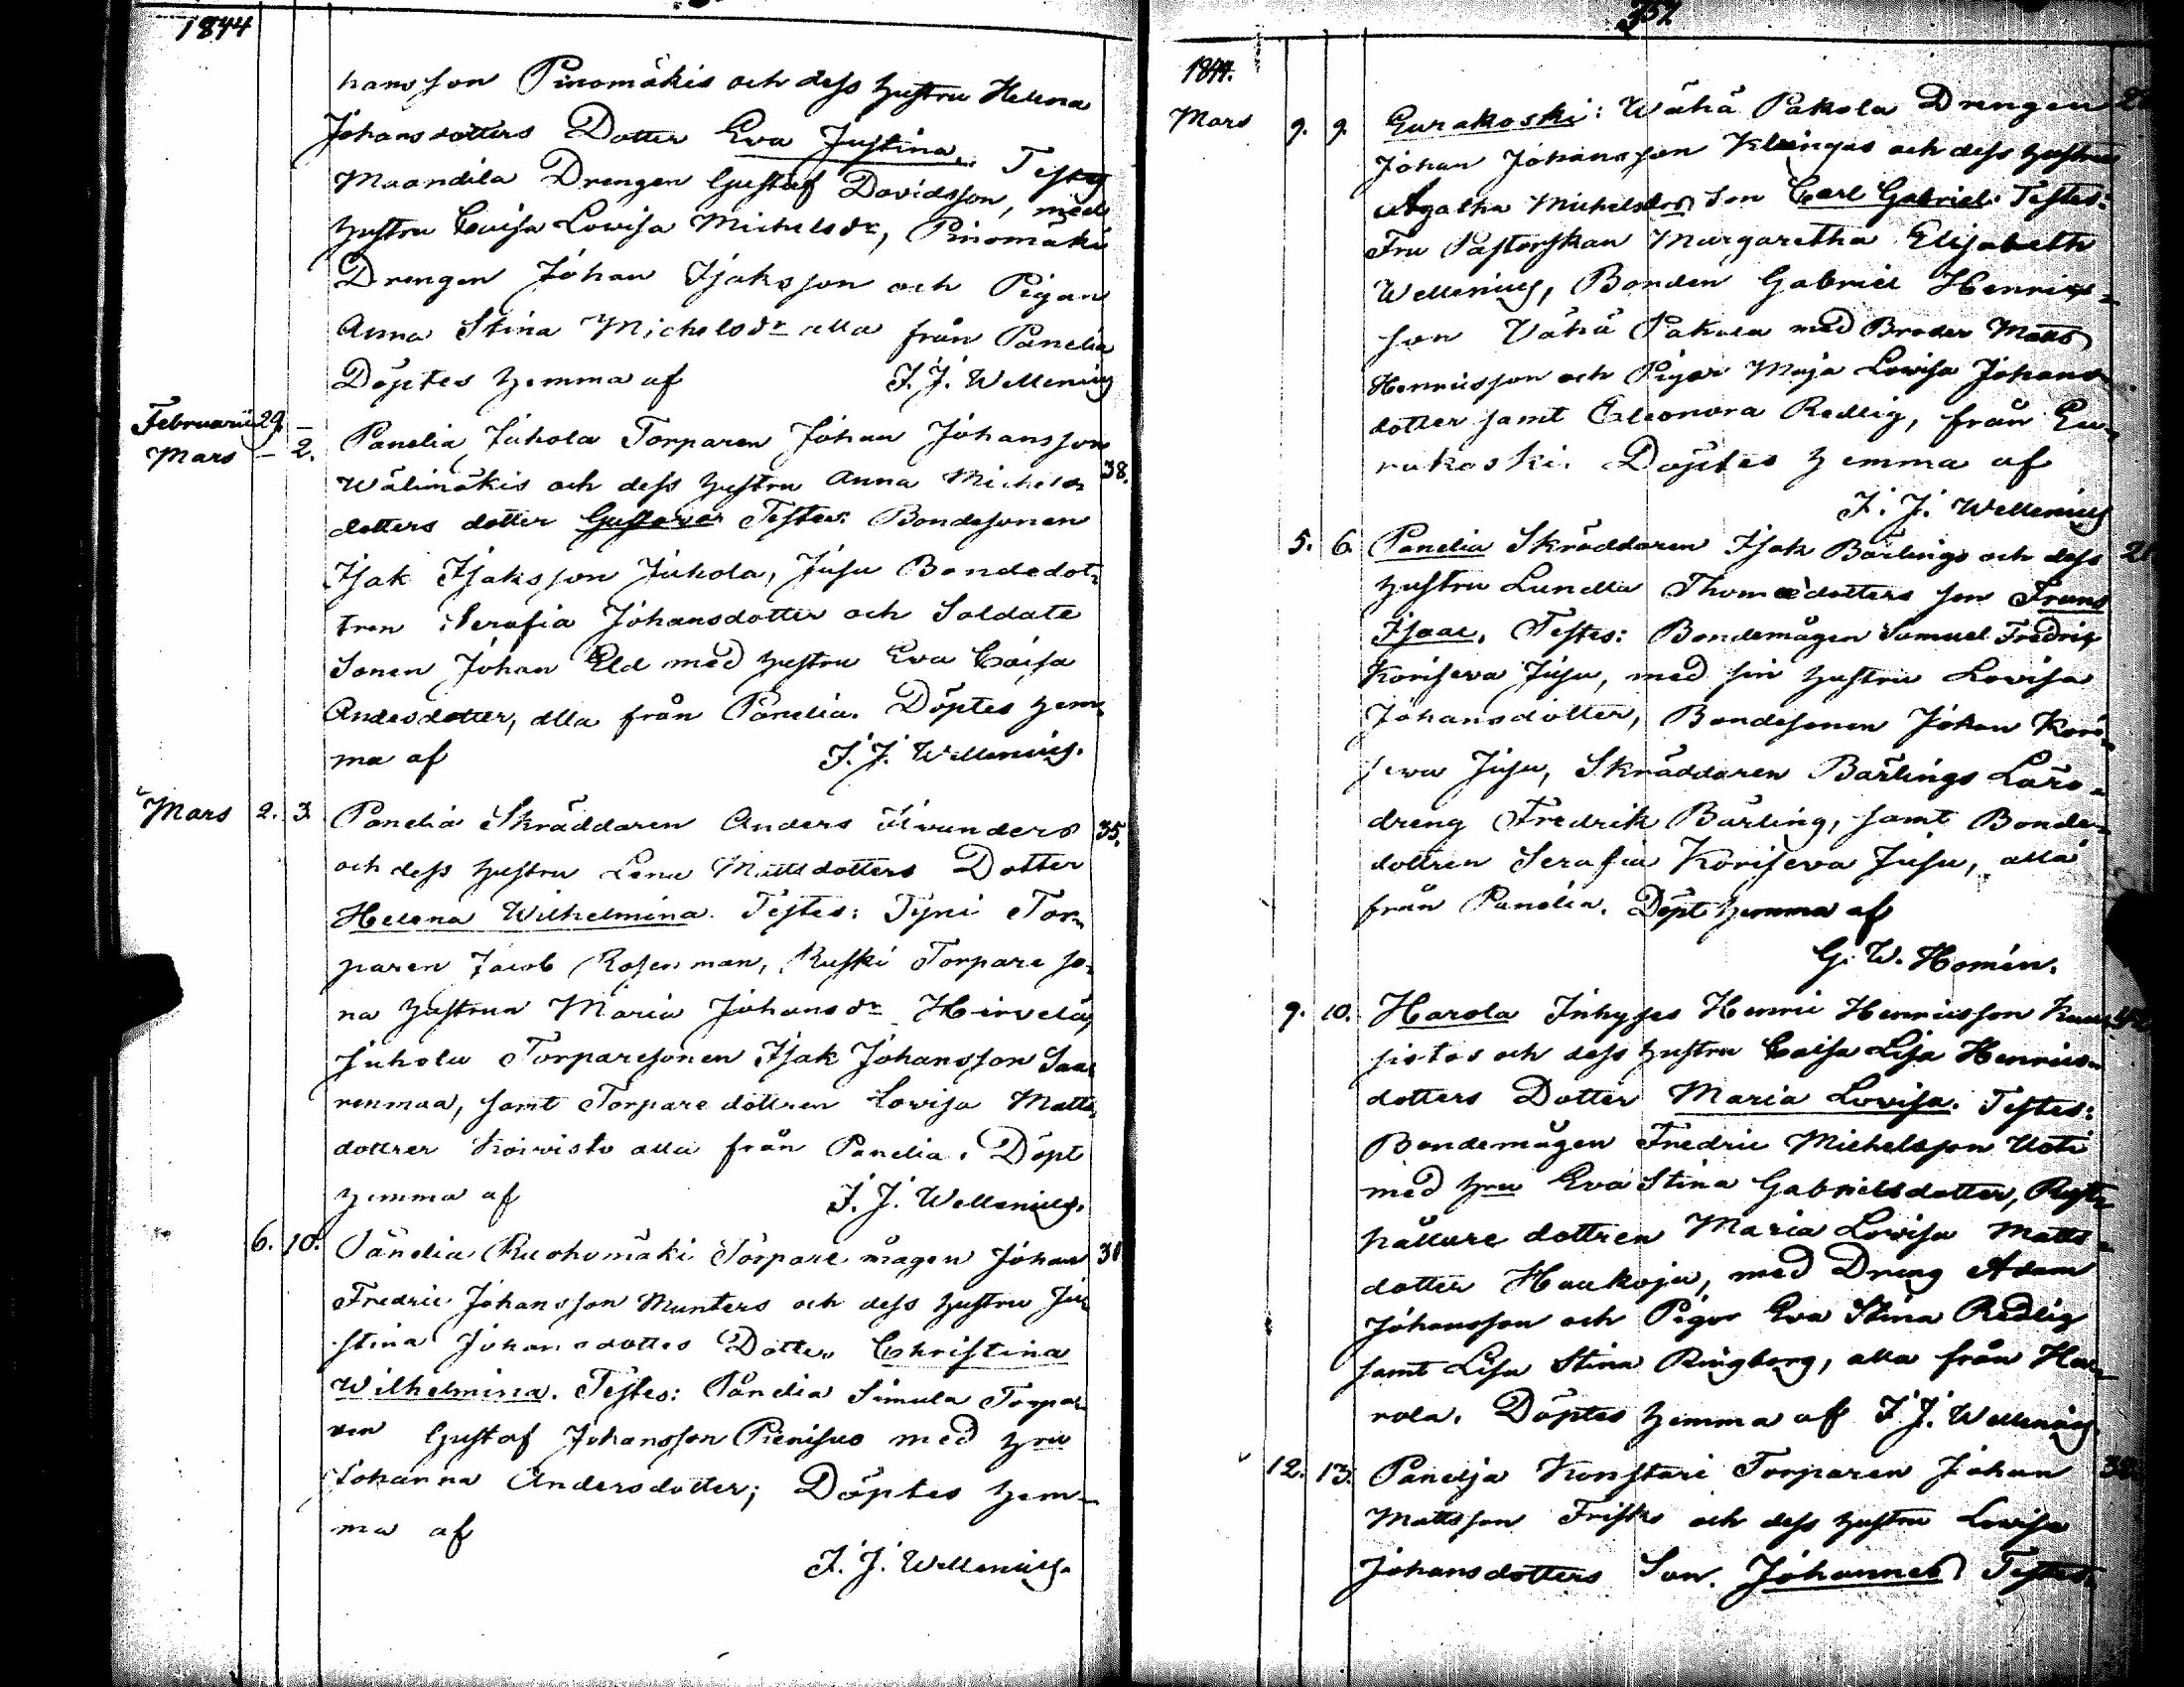 1844
hansson Pinomäkis och dess hustru Helena
Johansdotters Dotter Eva Justina. Testes
Maandila Drengen Gustaf Davidsson, med
hustru Caisa Lovisa Michelsdr, Pinomäki
Drengen Johan Isaksson och Pigan
Anna Stina Michelsdr alla från Panelia
Döptes hemma af J. J. Wellenius
Februarii 29. –
Mars – 2. Panelia Juhola Torparen Johan Johansson
Wälimäkis och dess hustru Anna Michels 38.
dotters dotter Gustava Testes: Bondesonen
Isak Isaksson Juhola, Jusu Bondedot-
tren Serafia Johansdotter och Soldate
Sonen Johan Eld med hustru Eva Caisa
Andesdotter, alla från Panelia. Döptes hem-
ma af J. J. Wellenius.
Mars 2. 3. Panelia Skräddaren Anders 35.
och dess hustru Lena Mattsdotters Dotter
Helena Wilhelmina. Testes: Tyni Tor-
paren Jacob Rosenman, Ruski Torpare so-
na hustrun Maria Johansdr Heinvelä,
Juhola Torparesonen Isak Johansson Saa-
renmaa, samt Torpare dottren Lovisa Matts
dotter Koivisto alla från Panelia. Döpt
hemma af J. J. Wellenius.
6. 10. Panelia Ruohomäki Torpare mågen Johan 31
Fredric Johansson Munters och dess hustru Ju-
stina Johansdotters Dotter Christina
Wilhelmina. Testes: Panelia Simula Torpa-
ren Gustaf Johansson Pienisuo med hru
Johanna Andersdotter; Döptes hem-
ma af
J. J. Wellenius.
357
1844.
Mars 9. 9. Eurakoski: Wähä Pakola Drengen
Johan Johansson Klingas och dess hustru
Agatha Michelsdrs Son Carl Gabriel. Testes:
Fru Pastorskan Margaretha Elisabeth
Wellenius, Bonden Gabriel Henrics-
son Vähä Pakola med Broder Matts
Henricsson och Pigor Maja Lovisa Johans-
dotter samt Eleonora Redlig, från Eu-
rakoski. Döptes hemma af
J. J. Wellenius
5. 6. Panelia Skräddaren Isak Bärlings och dess
hustru Lunella Thomædotters son Frans
Isaac. Testes: Bondemågen Samuel Fredric
Koriseva Jusu, med sin hustru Lovisa
Johansdotter, Bondesonen Johan Kori-
seva Jusu, Skräddaren Bärlings Läro-
dreng Fredrik Bärling, samt Bonde-
dottren Serafia Koriseva Jusu, alla
från Panelia. Döpt hemma af
G. W. Homén.
9. 10. Harola Inhyses Henric Henricsson Kuu-
sistos och dess hustru Caisa Lisa Henrics-
dotters Dotter Maria Lovisa. Testes:
Bondemågen Fredric Michelsson Uoti
med hru Eva Stina Gabrielsdotter, Rust-
hållare dottren Maria Lovisa Matts-
dotter Haukoja, med Dreng Adam
Johansson och Pigor Eva Stina Redlig
samt Lisa Stina Ringborg, alla från Ha-
rola. Döptes hemma af J. J. Wellenius
12. 13. Panelja Konstari Torparen Johan
Mattsson Frisks och dess hustru Lovisa
Johansdotters Son. Johannes Testes.